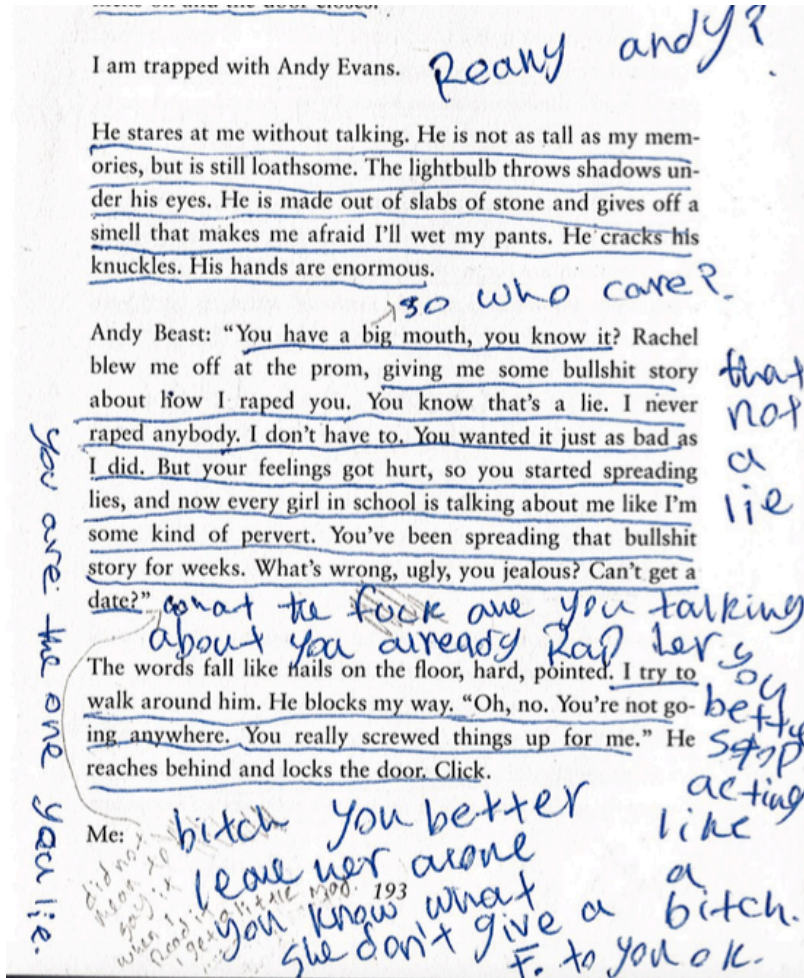 I am trapped with Andy Evans.
Reany andy?
He stares at me without talking. He is not as tall as my mem-
ories, but is still loathsome. The lightbulb throws shadows un-
der his eyes. He is made out of slabs of stone and gives off a
smell that makes me afraid I'll wet my pants. He cracks his
knuckles. His hands are enormous.
so who care?
Andy Beast: "You have a big mouth, you know it? Rachel
blew me off at the prom, giving me some bullshit story
about how I raped you. You know that's a lie. I never
raped anybody. I don't have to. You wanted it just as bad as
I did. But your feelings got hurt, so you started spreading
lies, and now every girl in school is talking about me like I'm
some kind of pervert. You've been spreading that bullshit
story for weeks. What's wrong, ugly, you jealous? Can't get a
date?"
that
not
a
lie
you are the one you lie.
what the fock are you talking
about you already Rap her
you
bette
stop
acting
like
a
bitch.
The words fall like nails on the floor, hard, pointed. I try to
walk around him. He blocks my way. "Oh, no. You're not go-
ing anywhere. You really screwed things up for me." He
reaches behind and locks the door. Click.
Me:
bitch you better
leave her alone
you know what
she don't give a
F. to you ok.
did not
mean to
say it
when I
Read it
I get a little mad.
193